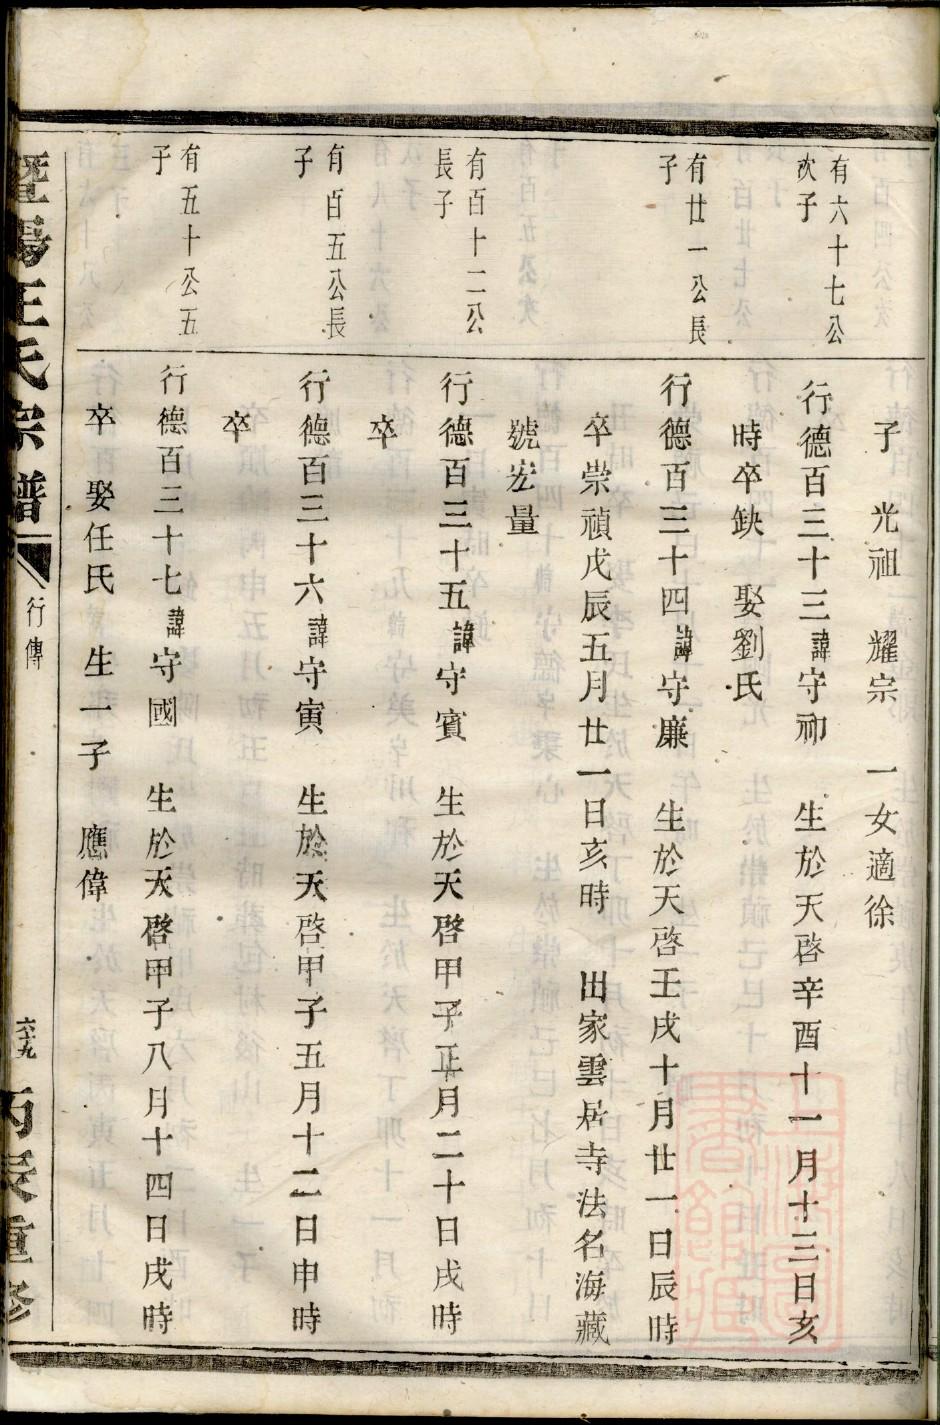 子　光祖　耀宗　一女適徐
有六十七公
次子
行德百三十三諱守祁　生於天啓辛酉十一月十三日亥
時卒缺　娶劉氏
有廿一公長
子
行德百三十四諱守廉　生於天啓壬戌十月廿一日辰時
卒崇禎戊辰五月廿一日亥時　出家雲居寺法名海藏
號宏量
有百十二公
長子
行德百三十五諱守賓　生於天啓甲子正月二十日戌時
卒
有百五公長
子
行德百三十六諱守寅　生於天啓甲子五月十二日申時
卒
有五十公五
子
行德百三十七諱守國　生於天啓甲子八月十四日戌時
卒　娶任氏　生一子　應偉
暨陽王氏宗譜　行傳　六十九　丙辰重修